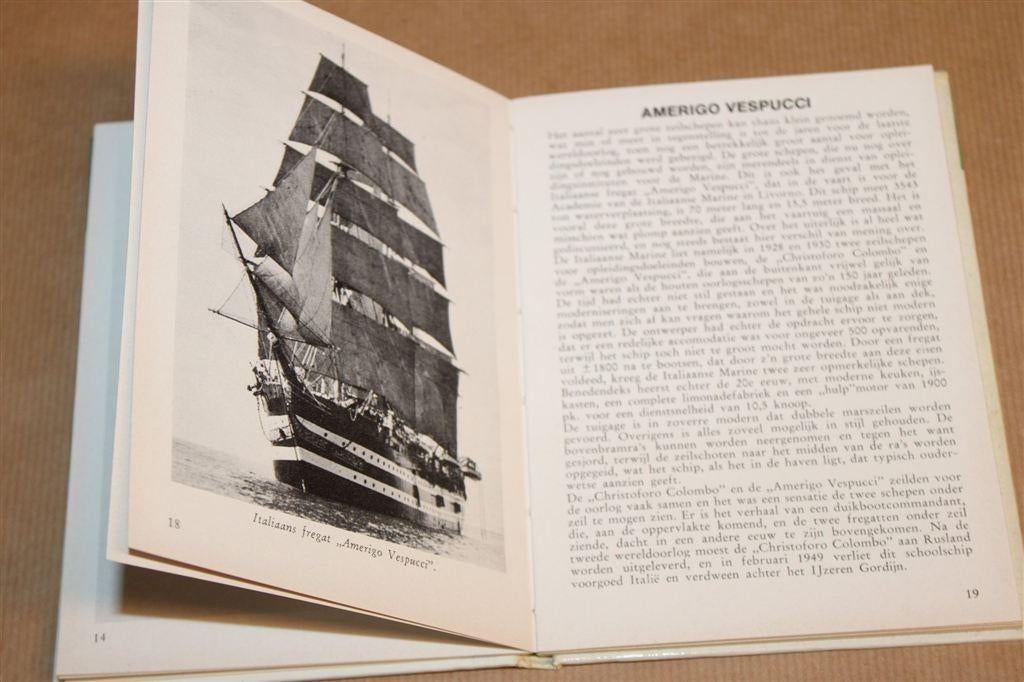 18
Italiaans fregat „Amerigo Vespucci”.
14
AMERIGO VESPUCCI
Het aantal zeer grote zeilschepen kan thans klein genoemd worden,
wat men of meer in tegenstelling is tot de jaren voor de laatste
wereldoorlog, toen nog een betrekkelijk groot aantal voor oplei-
dingsdoeleinden werd gebezigd. De grote schepen, die nu nog over
zijn of nog gebouwd worden, zijn merendeels in dienst van oplei-
dingsinstituten voor de Marine. Dit is ook het geval met het
Italiaanse fregat „Amerigo Vespucci”, dat in de vaart is voor de
Academie van de Italiaanse Marine in Livorno. Dit schip meet 3543
ton waterverplaatsing, is 70 meter lang en 15,5 meter breed. Het is
vooral deze grote breedte, die aan het vaartuig een massaal en
misschien wat plomp aanzien geeft. Over het uiterlijk is al heel wat
gediscussieerd, en nog steeds bestaat hier verschil van mening over.
De Italiaanse Marine liet namelijk in 1928 en 1930 twee zeilschepen
voor opleidingsdoeleinden bouwen, de „Christoforo Colombo” en
de „Amerigo Vespucci”, die aan de buitenkant vrijwel gelijk van
vorm waren als de houten oorlogsschepen van zo'n 150 jaar geleden.
De tijd had echter niet stil gestaan en het was noodzakelijk enige
moderniseringen aan te brengen, zowel in de tuigage als aan dek,
zodat men zich af kan vragen waarom het gehele schip niet modern
is opgezet. De ontwerper had echter de opdracht ervoor te zorgen,
dat er een redelijke accomodatie was voor ongeveer 500 opvarenden,
terwijl het schip toch niet te groot mocht worden. Door een fregat
uit ± 1800 na te bootsen, dat door z'n grote breedte aan deze eisen
voldeed, kreeg de Italiaanse Marine twee zeer opmerkelijke schepen.
Benedendeks heerst echter de 20e eeuw, met moderne keuken, ijs-
kasten, een complete limonadefabriek en een „hulp”motor van 1900
pk. voor een dienstsnelheid van 10,5 knoop.
De tuigage is in zoverre modern dat dubbele marszeilen worden
gevoerd. Overigens is alles zoveel mogelijk in stijl gehouden. De
bovenbramra's kunnen worden neergenomen en tegen het want
gesjord, terwijl de zeilschoten naar het midden van de ra's worden
opgegeid, wat het schip, als het in de haven ligt, dat typisch ouder-
wetse aanzien geeft.
De „Christoforo Colombo” en de „Amerigo Vespucci” zeilden voor
de oorlog vaak samen en het was een sensatie de twee schepen onder
zeil te mogen zien. Er is het verhaal van een duikbootcommandant,
die, aan de oppervlakte komend, en de twee fregatten onder zeil
ziende, dacht in een andere eeuw te zijn bovengekomen. Na de
tweede wereldoorlog moest de „Christoforo Colombo” aan Rusland
worden uitgeleverd, en in februari 1949 verliet dit schoolschip
voorgoed Italië en verdween achter het IJzeren Gordijn.
19